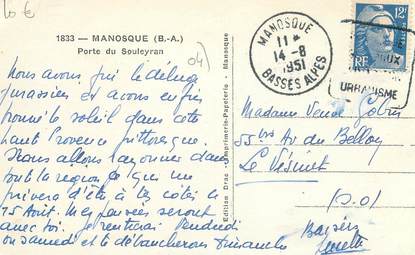 10 €
1833 — MANOSQUE (B.-A.)
Porte du Souleyran
04)
Nous avons fui le déluge
jurassien et avons enfin
trouvé le soleil dans cette
haut Provence pittoresque.
Nous allons rayonner dans
tout la région ce qui me
privera d'être à tes côtés le
15 Août. Mes pensées seront
avec toi. Je rentrerai Vendredi
ou samedi et le débarcherons Dimanche
Edition Drac - Imprimerie-Papeterie - Manosque
MANOSQUE
11 *
14 - 8
1951
BASSES ALPES
12F
RF
URBANISME
Madame Veuve Gobin
55bis Av du Belloy
Le Vésinet
(S.O)
Baisers